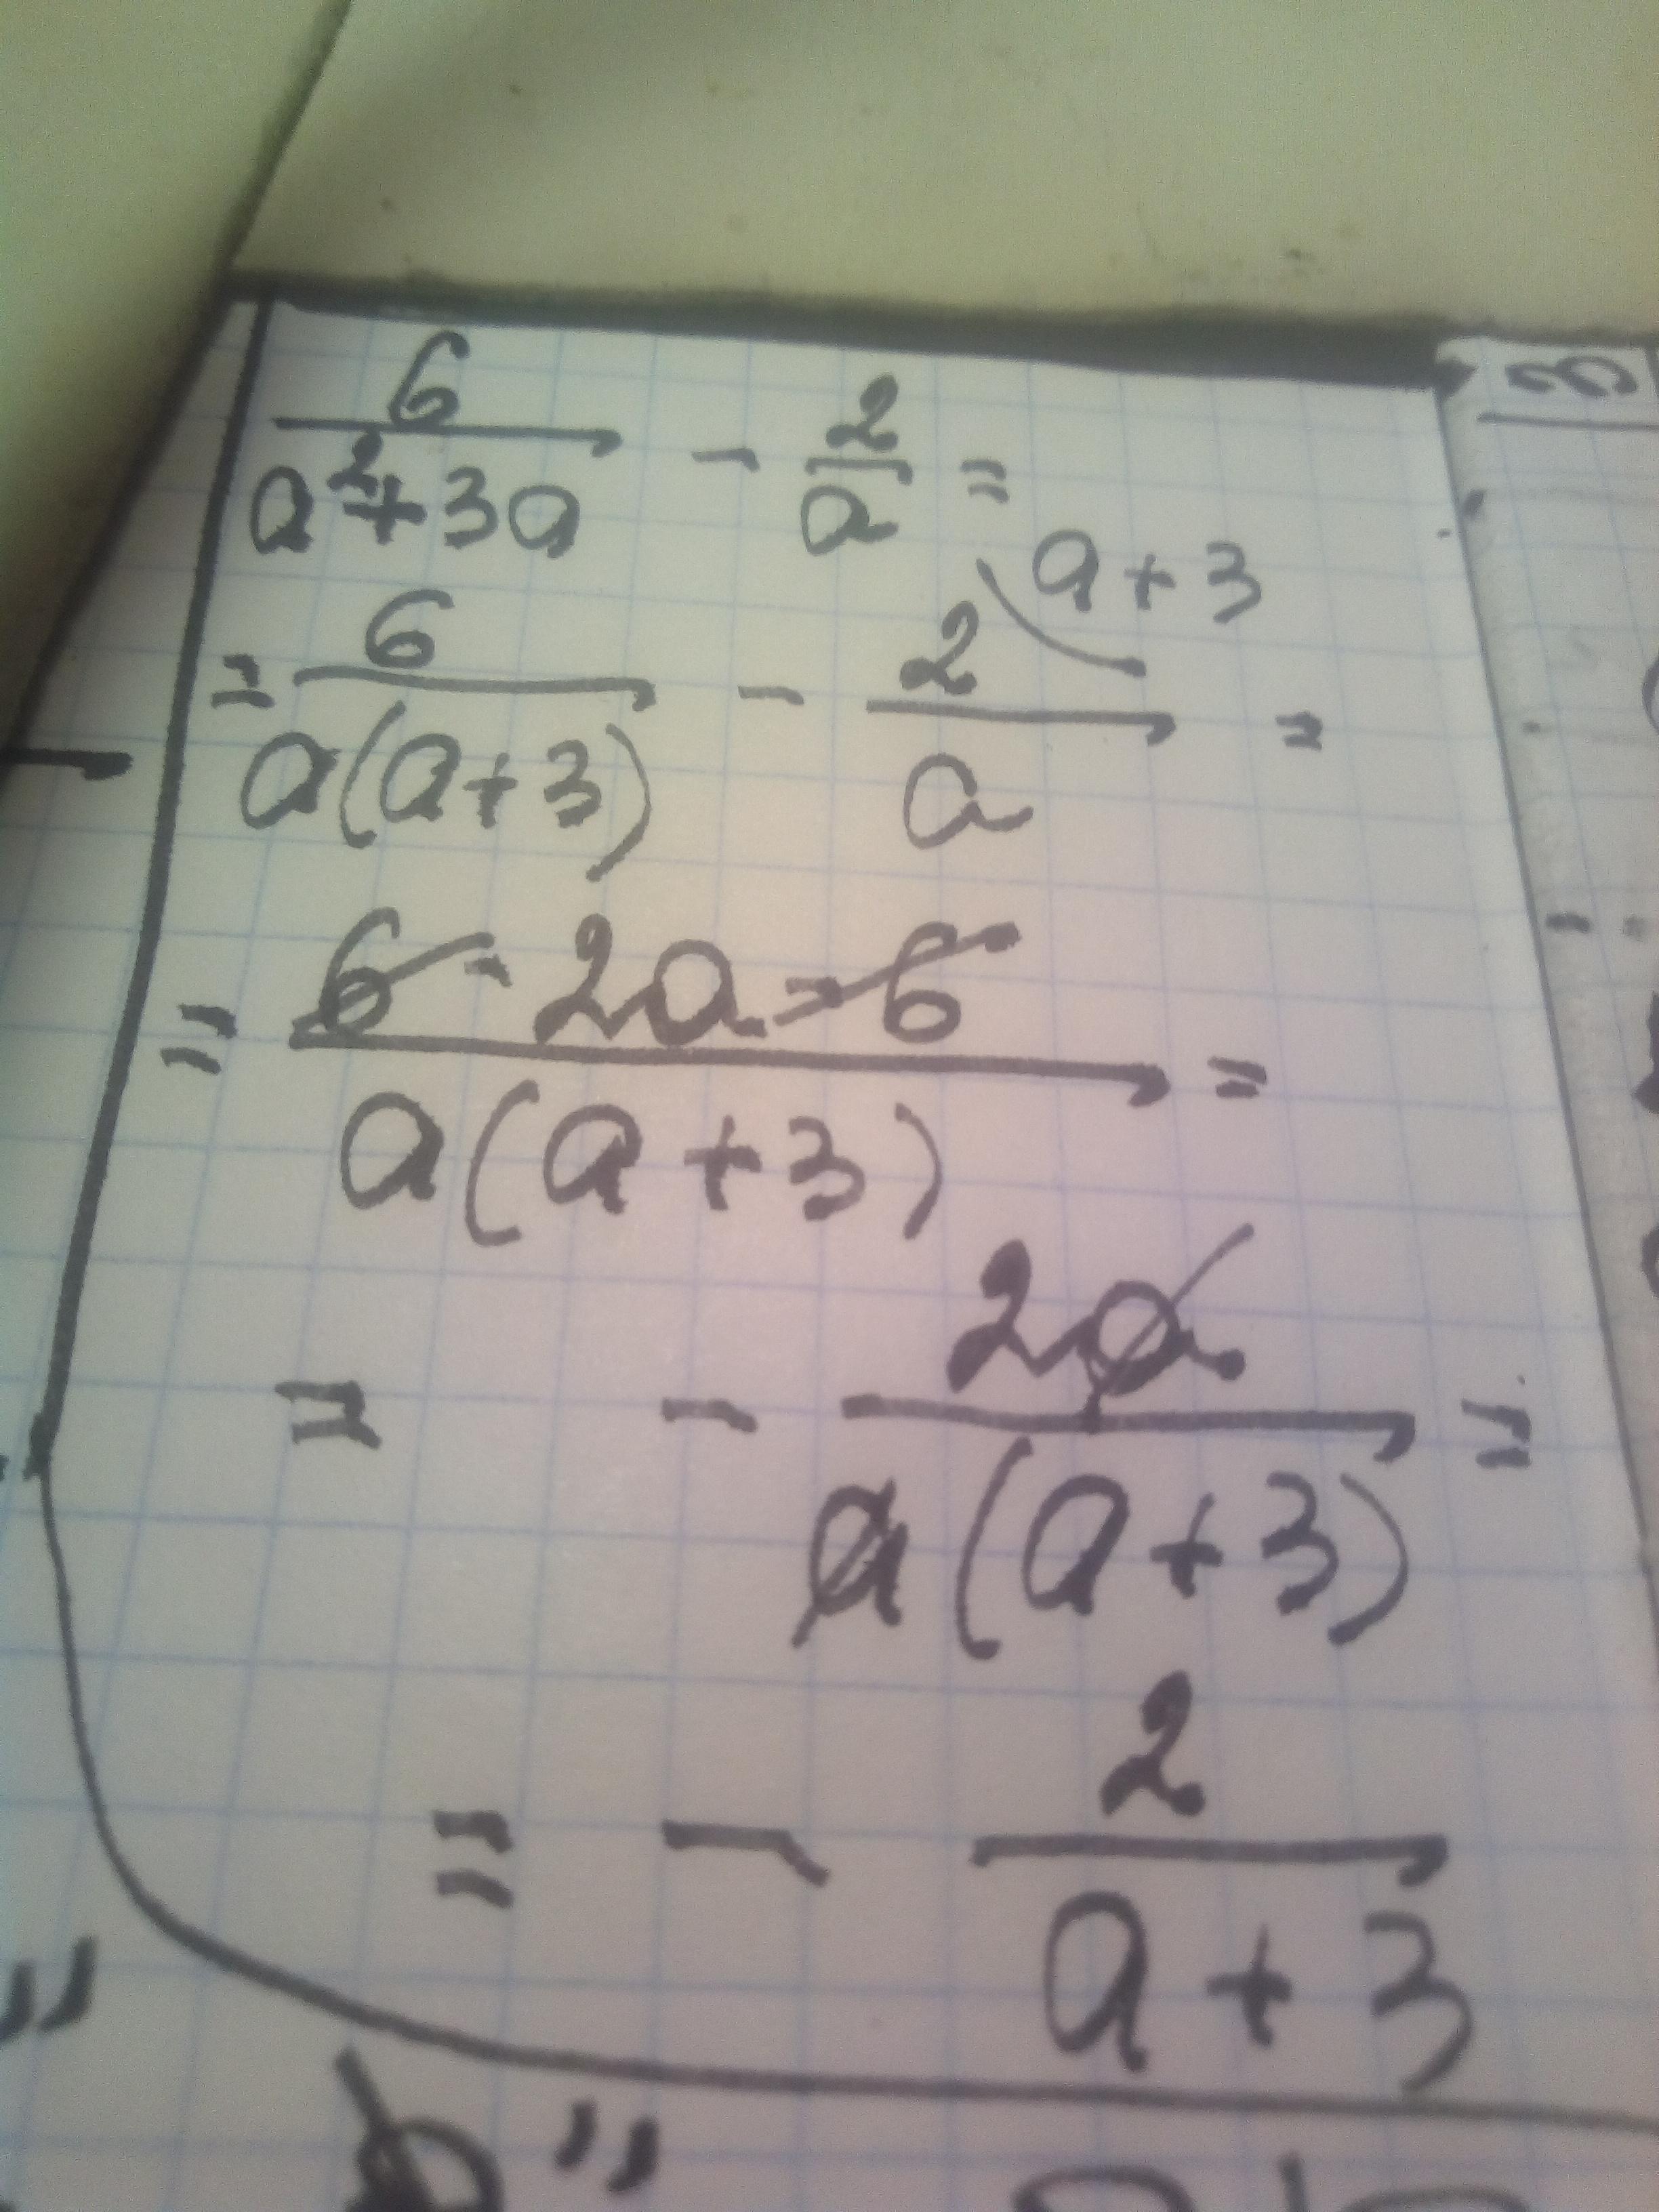 6/(a²+3a) - 2/a =
= 6/(a(a+3)) - 2\a+3/a =
= (6-2a-6)/(a(a+3)) =
= - 2a/(a(a+3)) =
= - 2/(a+3)